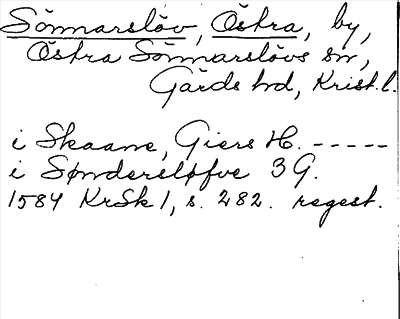 Sönnarslöv, Östra, by,
Östra Sönnarslövs sn,
Gärds hd, Krist.l.
i Skaane, Giers H. -----
i Søndersløfve 3 G.
1584 KrSk 1, s. 282. regest.